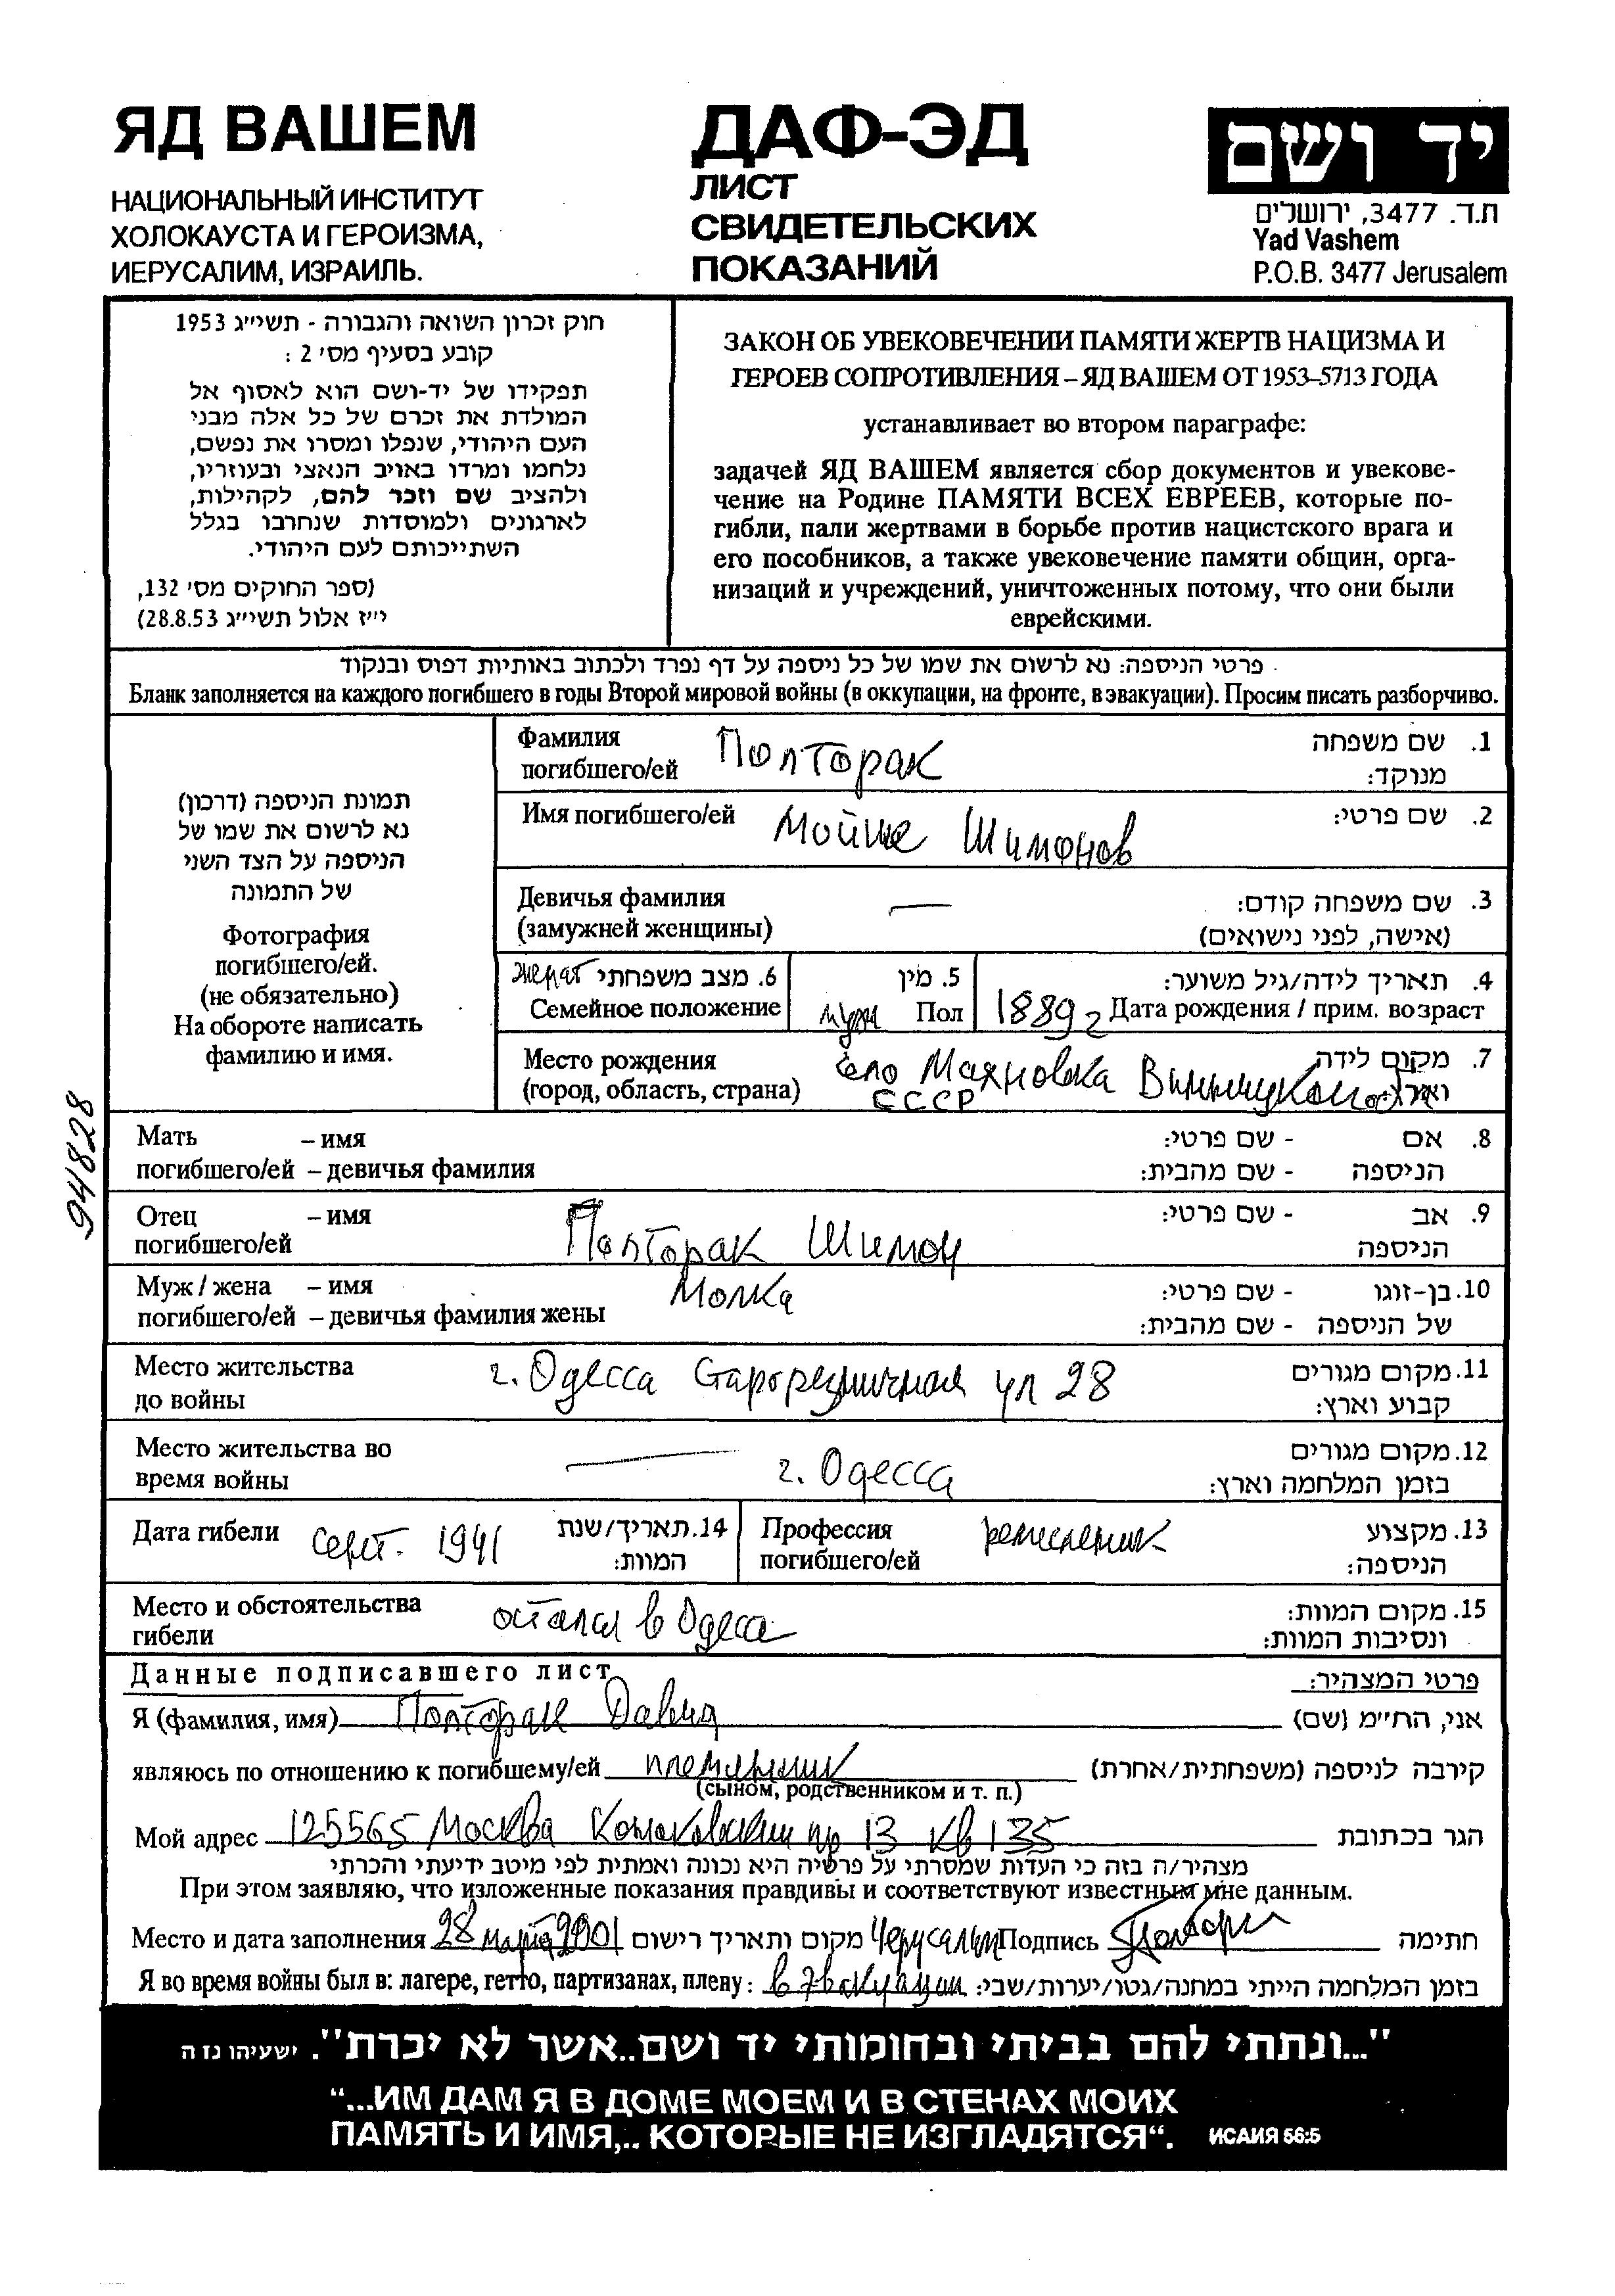 ЯД ВАШЕМ
НАЦИОНАЛЬНЫЙ ИНСТИТУТ
ХОЛОКАУСТА И ГЕРОИЗМА,
ИЕРУСАЛИМ, ИЗРАИЛЬ.
ДАФ-ЭД
ЛИСТ
СВИДЕТЕЛЬСКИХ
ПОКАЗАНИЙ
יד ושם
ת.ד. 3477, ירושלים
Yad Vashem
P.O.B. 3477 Jerusalem
חוק זכרון השואה והגבורה - תשי״ג 1953
קובע בסעיף מס׳ 2 :
תפקידו של יד-ושם הוא לאסוף אל
המולדת את זכרם של כל אלה מבני
העם היהודי, שנפלו ומסרו את נפשם,
נלחמו ומרדו באויב הנאצי ובעוזריו,
ולהציב שם וזכר להם, לקהילות,
לארגונים ולמוסדות שנחרבו בגלל
השתייכותם לעם היהודי.
(ספר החוקים מס׳ 132,
י״ז אלול תשי״ג 28.8.53)
ЗАКОН ОБ УВЕКОВЕЧЕНИИ ПАМЯТИ ЖЕРТВ НАЦИЗМА И
ГЕРОЕВ СОПРОТИВЛЕНИЯ – ЯД ВАШЕМ ОТ 1953–5713 ГОДА
устанавливает во втором параграфе:
задачей ЯД ВАШЕМ является сбор документов и увекове-
чение на Родине ПАМЯТИ ВСЕХ ЕВРЕЕВ, которые по-
гибли, пали жертвами в борьбе против нацистского врага и
его пособников, а также увековечение памяти общин, орга-
низаций и учреждений, уничтоженных потому, что они были
еврейскими.
פרטי הניספה: נא לרשום את שמו של כל ניספה על דף נפרד ולכתוב באותיות דפוס ובנקוד
Бланк заполняется на каждого погибшего в годы Второй мировой войны (в оккупации, на фронте, в эвакуации). Просим писать разборчиво.
תמונת הניספה (דרכון)
נא לרשום את שמו של
הניספה על הצד השני
של התמונה
Фотография
погибшего/ей.
(не обязательно)
На обороте написать
фамилию и имя.
94828
Фамилия Полторак 1. שם משפחה
погибшего/ей מנוקד:
Имя погибшего/ей Мойше Шимонов 2. שם פרטי:
Девичья фамилия — 3. שם משפחה קודם:
(замужней женщины) (אישה, לפני נישואים)
женат 6. מצב משפחתי 5. מין 4. תאריך לידה/גיל משוער:
Семейное положение муж Пол 1889 г Дата рождения / прим. возраст
Место рождения село Махновка Винницкой обл 7. מקום לידה
(город, область, страна) СССР וארץ:
Мать – имя 8. אם - שם פרטי:
погибшего/ей – девичья фамилия הניספה - שם מהבית:
Отец – имя 9. אב - שם פרטי:
погибшего/ей Полторак Шимон הניספה
Муж / жена – имя Молка 10. בן-זוגו - שם פרטי:
погибшего/ей – девичья фамилия жены של הניספה - שם מהבית:
Место жительства г. Одесса Старорезничная ул 28 11. מקום מגורים
до войны קבוע וארץ:
Место жительства во — г. Одесса 12. מקום מגורים
время войны בזמן המלחמה וארץ:
Дата гибели сент. 1941 14. תאריך/שנת
המוות:
Профессия ремесленик 13. מקצוע
погибшего/ей הניספה:
Место и обстоятельства остался в Одесса 15. מקום המוות:
гибели ונסיבות המוות:
Данные подписавшего лист פרטי המצהיר:
Я (фамилия, имя) Полторак Давид אני, הח״מ (שם)
являюсь по отношению к погибшему/ей племянник קירבה לניספה (משפחתית/אחרת)
(сыном, родственником и т. п.)
Мой адрес 125565 Москва Конаковский пр 13 кв 135 הגר בכתובת
מצהיר/ה בזה כי העדות שמסרתי על פרטיה היא נכונה ואמתית לפי מיטב ידיעתי והכרתי
При этом заявляю, что изложенные показания правдивы и соответствуют известным мне данным.
Место и дата заполнения 28 марта 2001 מקום ותאריך רישום Иерусалим Подпись חתימה
Я во время войны был в: лагере, гетто, партизанах, плену: в эвакуации בזמן המלחמה הייתי במחנה/גטו/יערות/שבי:
"...ונתתי להם בביתי ובחומותי יד ושם..אשר לא יכרת". ישעיהו נו ה
“...ИМ ДАМ Я В ДОМЕ МОЕМ И В СТЕНАХ МОИХ
ПАМЯТЬ И ИМЯ,.. КОТОРЫЕ НЕ ИЗГЛАДЯТСЯ“. ИСАИЯ 56:5